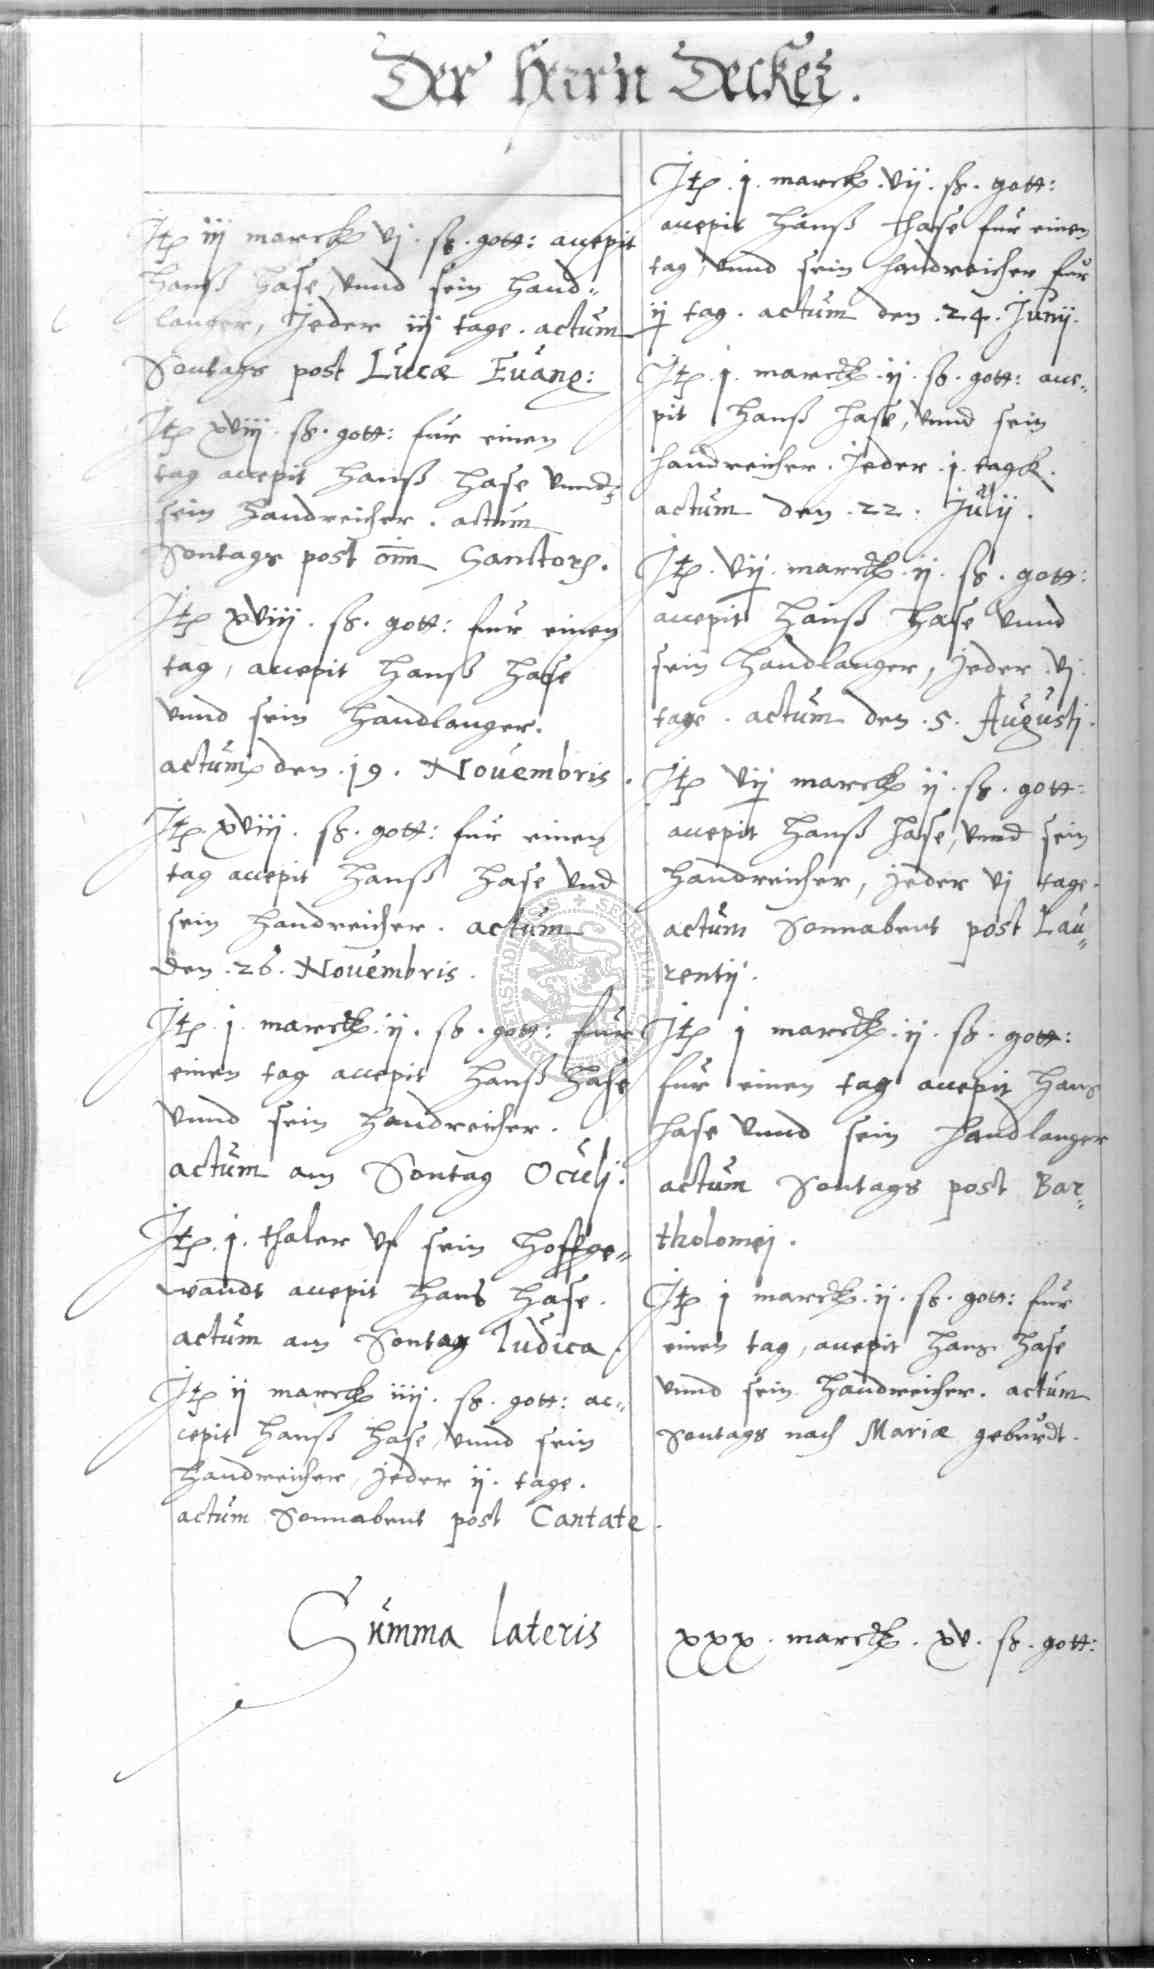 Der Herrn Decker.
Itē iij marck vj. ß. gott: accepit
Hanß Hase, vnnd sein Hand-
langer, Jeder iij tage. actum
Sontags post Lucæ Euang:
Itē xviij. ß. gott: fur einen
tag accepit Hanß Hase vnnd
sein Handreicher. actum
Sontags post oīm Sanctorū.
Itē xviij. ß. gott: fur einen
tag, accepit Hanß Hase
vnnd sein Handlanger.
actum den .19. Nouembris.
Itē xviij. ß. gott: fur einen
tag accepit Hanß Hase vnd
sein Handreicher. actum
den .26. Nouembris.
Itē .j. marck .ij. ß. gott: fur
einen tag accepit Hanß Hase
vnnd sein Handreicher.
actum am Sontag Oculj.
Itē .j. thaler vf sein Hoffge-
wandt accepit Hans Hase.
actum am Sontag Iudica.
Itē ij marck iiij. ß. gott: ac-
cepit Hanß Hase, vnnd sein
Handreicher, jeder ij. tage.
actum Sonnabent post Cantate.
Itē .j. marck .vij. ß. gott:
accepit Hanß Hase fur einen
tag, vnnd sein Handreicher fur
ij tag. actum den .24. Junij.
Itē .j. marck .ij. ß. gott: acce-
pit Hanß Hase, vnnd sein
Handreicher. Jeder .j. tagk.
actum den .22. Julij.
Itē. vij. marck .ij. ß. gott:
accepit Hanß Hase vnnd
sein Handlanger, jeder vj.
tage. actum den .5. Augustj.
Itē vij marck ij. ß. gott:
accepit Hanß Hase, vnnd sein
Handreicher, jeder vj tage.
actum Sonnabent post Lau-
rentij.
Itē j marck .ij. ß. gott:
fur einen tag accepit Hans
Hase vnnd sein Handlanger
actum Sontags post Bar-
tholomej.
Itē j marck .ij. ß. gott: fur
einen tag, accepit Hans Hase
vnnd sein Handreicher. actum
Sontags nach Mariæ geburdt.
Summa lateris xxx. marck. xv. ß. gott: